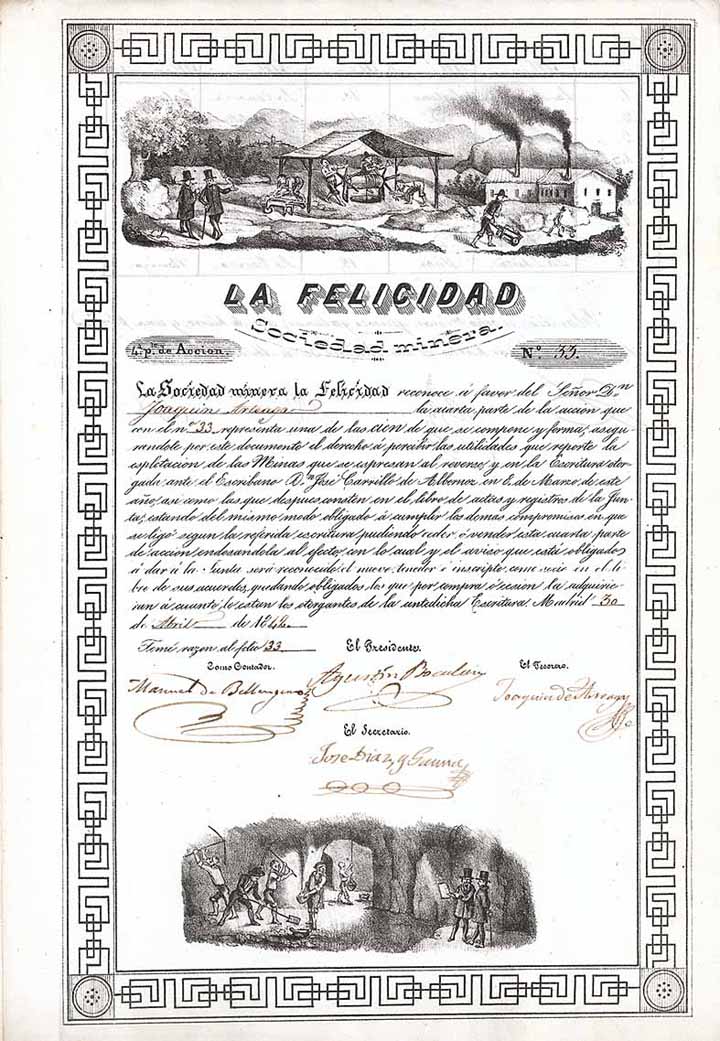 LA FELICIDAD
Sociedad minera.
4ª p.te de Accion.
Nº 33.
La Sociedad minera la Felicidad reconoce á favor del Señor D.n
Joaquin Arteaga la cuarta parte de la acción que
con el nº 33 representa una de las cien de que se compone y forma, asegu-
randole por este documento el derecho á percibir las utilidades que reporte la
esplotacion de las Minas que se espresan al reverso y en la Escritura otor-
gada ante el Escribano D.n José Carrillo de Albornoz en 8 de Marzo de este
año, asi como las que despues consten en el libro de actas y registros de la Jun-
ta, estando del mismo modo obligado á cumplir los demas compromisos en que
se ligó segun la referida escritura pudiendo ceder ó vender esta cuarta parte
de accion, endosandola al efecto, con lo cual y el aviso que está obligado
á dar á la Junta será reconocido el nuevo tenedor é inscripto como socio en el li-
bro de sus acuerdos, quedando obligados los que por compra ó cesion la adquirie-
ran á cuanto lo estan los otorgantes de la antedicha Escritura. Madrid 30
de Abril de 1844
Tomé razon al folio 33
El Presidente.
Como Contador.
El Tesorero.
Manuel de
Agustín
Joaquin de Arteaga
El Secretario.
Jose Diaz y